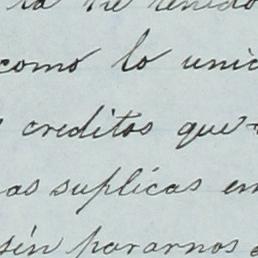 la he tenido
como lo unic
creditos que
as suplicas en
sin pararnos